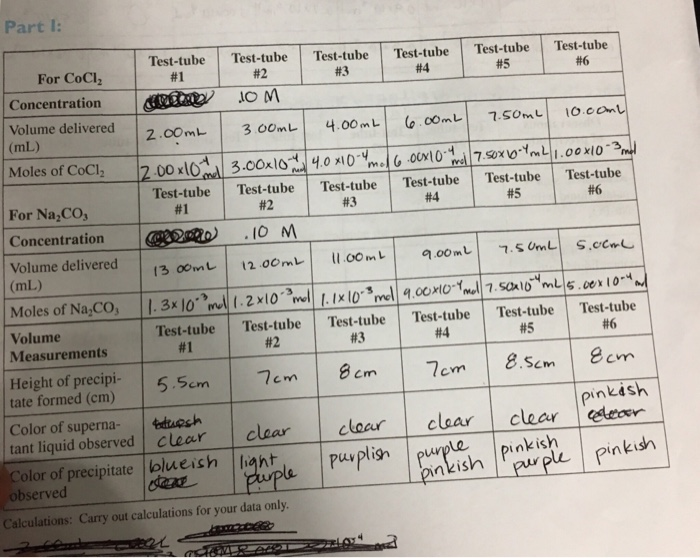 Part I:
For CoCl₂ Test-tube #1 Test-tube #2 Test-tube #3 Test-tube #4 Test-tube #5 Test-tube #6
Concentration .10 M
Volume delivered (mL) 2.00mL 3.00mL 4.00mL 6.00mL 7.50mL 10.00mL
Moles of CoCl₂ 2.00x10⁻⁴ mol 3.00x10⁻⁴ mol 4.0x10⁻⁴ mol 6.00x10⁻⁴ mol 7.50x10⁻⁴ mL 1.00x10⁻³ mol
For Na₂CO₃ Test-tube #1 Test-tube #2 Test-tube #3 Test-tube #4 Test-tube #5 Test-tube #6
Concentration .10 M
Volume delivered (mL) 13.00mL 12.00mL 11.00mL 9.00mL 7.50mL 5.00mL
Moles of Na₂CO₃ 1.3x10⁻³ mol 1.2x10⁻³ mol 1.1x10⁻³ mol 9.00x10⁻⁴ mol 7.50x10⁻⁴ mL 5.00x10⁻⁴ mol
Volume Measurements Test-tube #1 Test-tube #2 Test-tube #3 Test-tube #4 Test-tube #5 Test-tube #6
Height of precipi-
tate formed (cm) 5.5cm 7cm 8cm 7cm 8.5cm 8cm
Color of superna-
tant liquid observed clear clear clear clear clear pinkish
Color of precipitate observed blueish light purple purplish purple pinkish pinkish purple pinkish
Calculations: Carry out calculations for your data only.